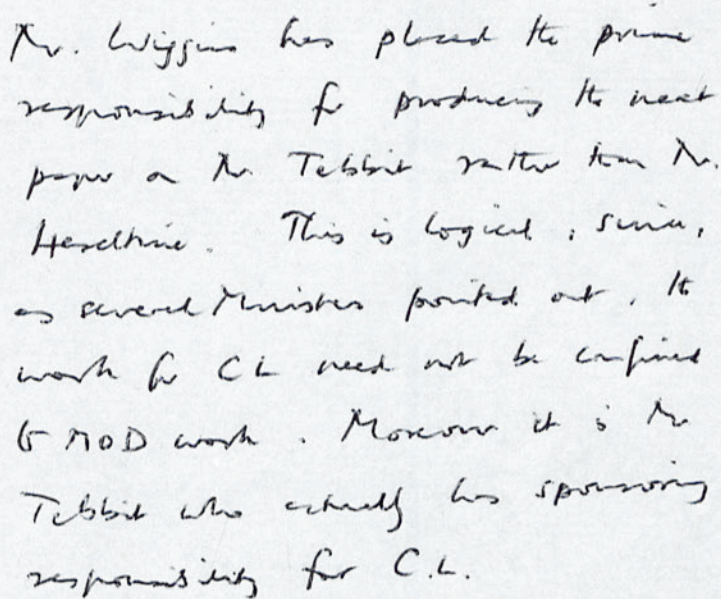 Mr. Wiggins has placed the prime
responsibility for producing the next
paper on Mr. Tebbit rather than Mr.
Heseltine. This is logical, since,
as several Ministers pointed out, the
work for CL need not be confined
to MOD work. Moreover it is Mr
Tebbit who actually has sponsoring
responsibility for C.L.